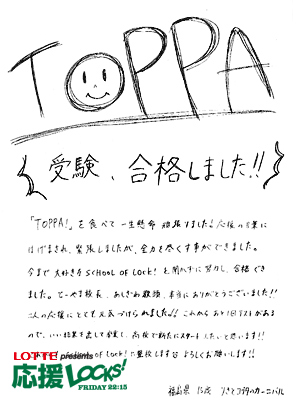 TOPPA
受験、合格しました!!
「TOPPA!」を食べて一生懸命 頑張りました!応援の言葉に
はげまされ、緊張しましたが、全力を尽くす事ができました。
今まで大好きなSCHOOL OF LOCK!を聞かずに努力し、合格でき
ました。とーやま校長、あしざわ教頭、本当にありがとうございました!!
二人の応援にとても元気づけられました!! これからあと1回テストがある
ので、いい結果を出して卒業し、高校で新たにスタートしたいと思います!!
OF LOCK!に登校しますので よろしくお願いします!!
LOTTE presents
応援LOCKS!
FRIDAY 22:15
福島県 15歳
カーニバル